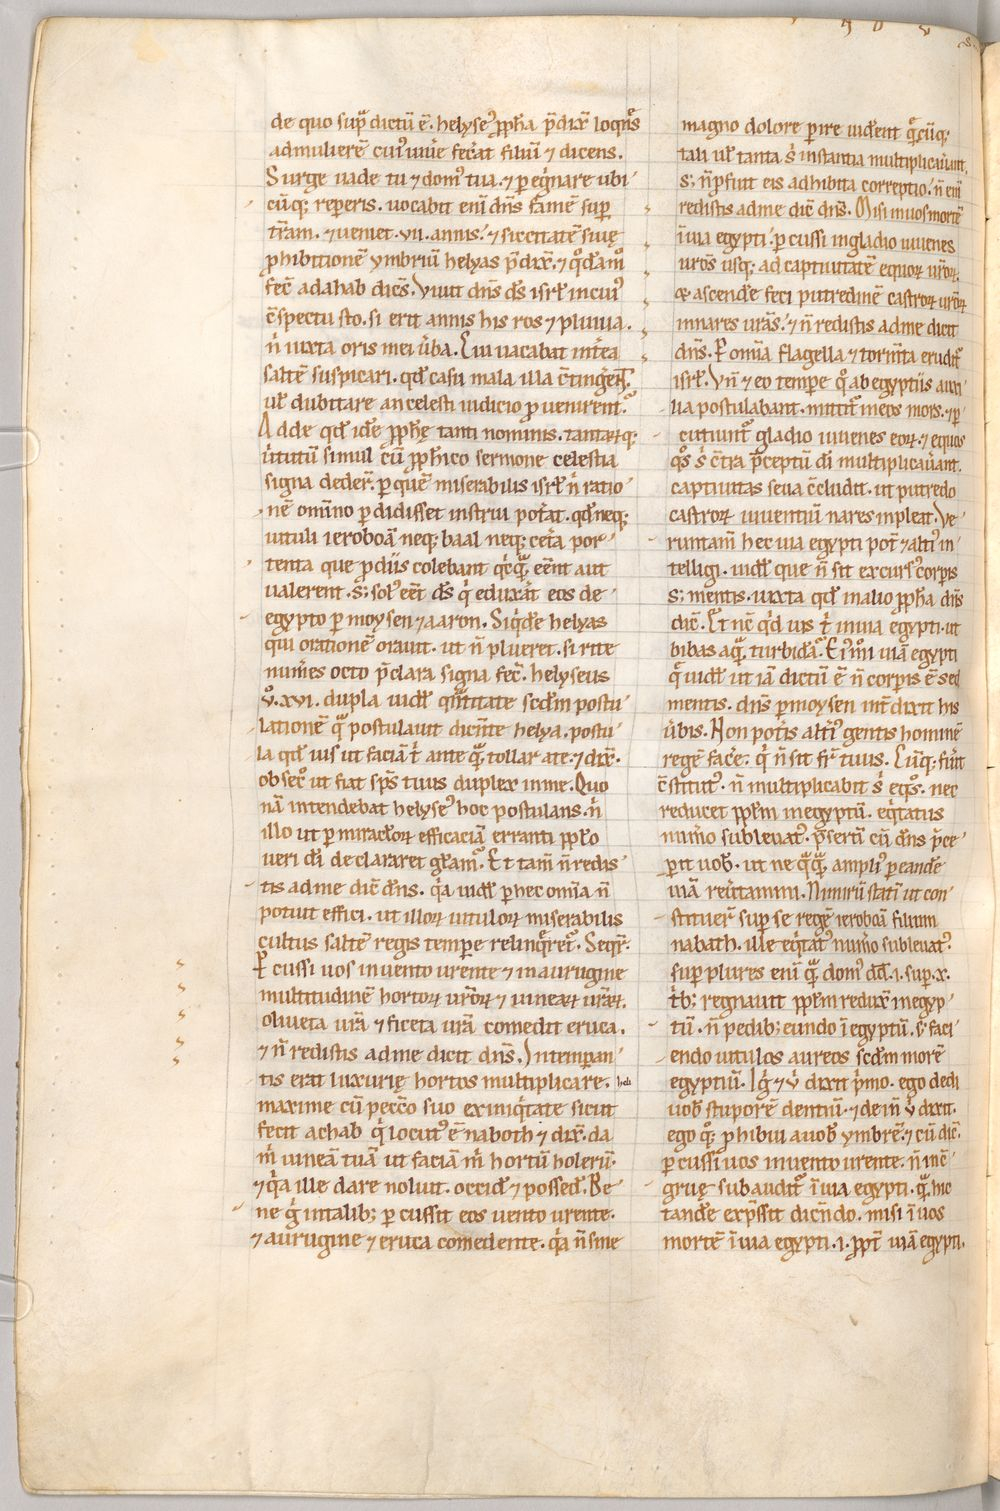 de quo sup̄ dictū ē. helyseꝰ ꝓph̄a p̄dix̄ loq̄ns
ad mulierē cuiꝰ uiuē fec̄at filiū ⁊ dicens.
Surge uade tu ⁊ domꝰ tua. ⁊ ꝑegͥnare ubi
cūq; reperis. uocabit enī dn̄s famē sup̄
tr̄am. ⁊ ueniet .vii. annis. ⁊ siccitatē siuę
ꝓhibitionē ymbriū helyas p̄dix̄. ⁊ qͦdāmͦ
fec̄ ad ahab dicēs. Viuit dn̄s ds̄ isrl̄ in cuiꝰ
ↄ̄spectu sto. si erit annis his ros ⁊ pluuia.
n̄ iuxta oris mei ūba. Cui uacabat int̄ea
saltē suspicari. qd̄ casu mala illa ↄ̄tinger̄t.
ul̄ dubitare an celesti iudicio ꝓuenirent.
Adde qd̄ idē ꝓph̄ę tanti nominis. tantarꝫq;
ūtutū simul cū ꝓph̄ico sermone celestia
signa dedēr̄. ꝑ quē miserabilis isrl̄ n̄ ratio
nē omīno ꝑdidisset instrui pot̄at. qd̄ neq;
uituli ieroboā neq; baal neq; cet̄a por
tenta que ꝓ diis colebant qͥcqͣ eēnt aut
ualerent. s; solꝰ eēt ds̄ qͥ eduxāt eos de
egypto ꝑ moysen ⁊ aaron. Siqͥdē helyas
qui orationē orauit. ut n̄ plueret. si rite
num̄es octo p̄clara signa fec̄. helyseus
v̊. xvi. dupla uidl̄ qͣntitate scd̄m postu
lationē qͣ postulauit dicn̄te helya. postu
la qd̄ uis ut faciā tͥ ante qͣ tollar a te. ⁊ dix̄.
obsecͦ ut fiat sp̄s tuus duplex in me. Quo
nā intendebat helyseꝰ hoc postulans. n̄
illo ut ꝑ miraclorꝫ efficaciā erranti ppl̄o
ueri dī declararet gl̄am. Et tam̄ n̄ redis
tis ad me dic̄ dn̄s. qͥa uidl̄ ꝑ hec om̄ia n̄
potuit effici. ut illorꝫ uitulorꝫ miserabilis
cultus saltē regis tempe relinqͥret. Seqr̄.
Percussi uos in uento urente ⁊ in aurugine
multitudinē hortorꝫ ur̄orꝫ ⁊ uinearꝫ ur̄arꝫ.
oliueta ur̄a ⁊ ficeta ur̄a comedit eruca.
⁊ n̄ redistis ad me dicit dn̄s. Intempan
tis erat luxurię hortos multiplicare.
maxime cū pecc̄o suo ex iniqͥtate sicut
fecit achab qͥ locutꝰ ē naboth ⁊ dix̄. da
m̄ uineā tuā ut faciā m̄ hortū holerū.
⁊ qͥa ille dare noluit. occid̄ ⁊ possed̄. Be
ne gͥ in talib; ꝑcussit eos uento urente.
⁊ aurugine ⁊ eruca comedente. qͥa n̄ sine
magno dolore ꝑire uidēnt qͤcūq;
tali ul̄ tanta s̄ instantia multiplicau̅unt.
s; n̄ ꝓfuit eis adhibita correptio. n̄ enī
redistis ad me dic̄ dn̄s. Misi in uos mortē
ī uia egypti. ꝑcussi in gladio iuuenes
ur̄os usq; ad captiuitatē equorꝫ ur̄orꝫ.
⁊ ascendē feci putredinē castrorꝫ ur̄orꝫ
in nares ur̄as. ⁊ n̄ redistis ad me dicit
dn̄s. Per om̄ia flagella ⁊ torm̄ta erudit̄
isrl̄. Vn̄ ⁊ eo tempe qͦ ab egyptiis auxi
lia postulabant. mittit̄ in eos mors. ⁊ ꝑ
cutiunt̄ gladio iuuenes eorꝫ. ⁊ equos
qͦs s̄ ↄ̄tra p̄ceptū dī multiplicau̅ant.
captiuitas seua ↄ̄cludit. ut putredo
castrorꝫ uiuentiū nares inpleat. Ve
runtam̄ hec uia egypti pot̄ ⁊ altiꝰ in
telligi. uidl̄ que n̄ sit excursꝰ corpis
s; mentis. iuxta qd̄ in alio ꝓph̄a dn̄s
dic̄. Et nē qͥd uis tͥ in uia egypti. ut
bibas aqͣ turbidā. Etim̄ uiā egypti
qͣ uidl̄ ut iā dictū ē n̄ corpis ē sed
mentis. dn̄s ꝑ moysen int̄dixit his
ūbis. Non pot̄is alt̄iꝰ gentis hominē
regē fac̄e. qͥ n̄ sit fr̄ tuus. Cūq; fūit
ↄ̄stitutꝰ. n̄ multiplicabit s̄ eqͦs. nec
reducet ppl̄m in egyptū. eqͥtatus
num̄o subleuatꝰ. p̄sertī cū dn̄s p̄ce
perit uob̄. ut ne qͣqͣ ampliꝰ ꝑ eandē
uiā reūtamini. Nimirū stati ut con
stituer̄ sup̄ se regē ieroboā filium
nabath. ille eqͥtatꝰ num̄o subleuatꝰ.
sup̄ plures enī qͣ domꝰ dd̄ .i. sup̄ .x.
tb; regnauit ppl̄m redux̄ in egyp
tū. n̄ pedib; eundo ī egyptū. s̄ faci
endo uitulos aureos scd̄m morē
egyptiū. Igͥ ⁊ v̊ dixit p̄mo. ego dedi
uob̄ stuporē dentiū. ⁊ dein̄ v̊ dixit.
ego qͦꝫ ꝓhibui a uob̄ ymbrē. ⁊ cū dic̄.
ꝑcussi uos in uento urente. n̄ inↄ̄
gruę subaudit̄ ī uia egypti. qͣ hic
tandē exp̄ssit dicn̄do. misi ī uos
mortē ī uia egypti .i. ꝓpt̄ uiā egypti.